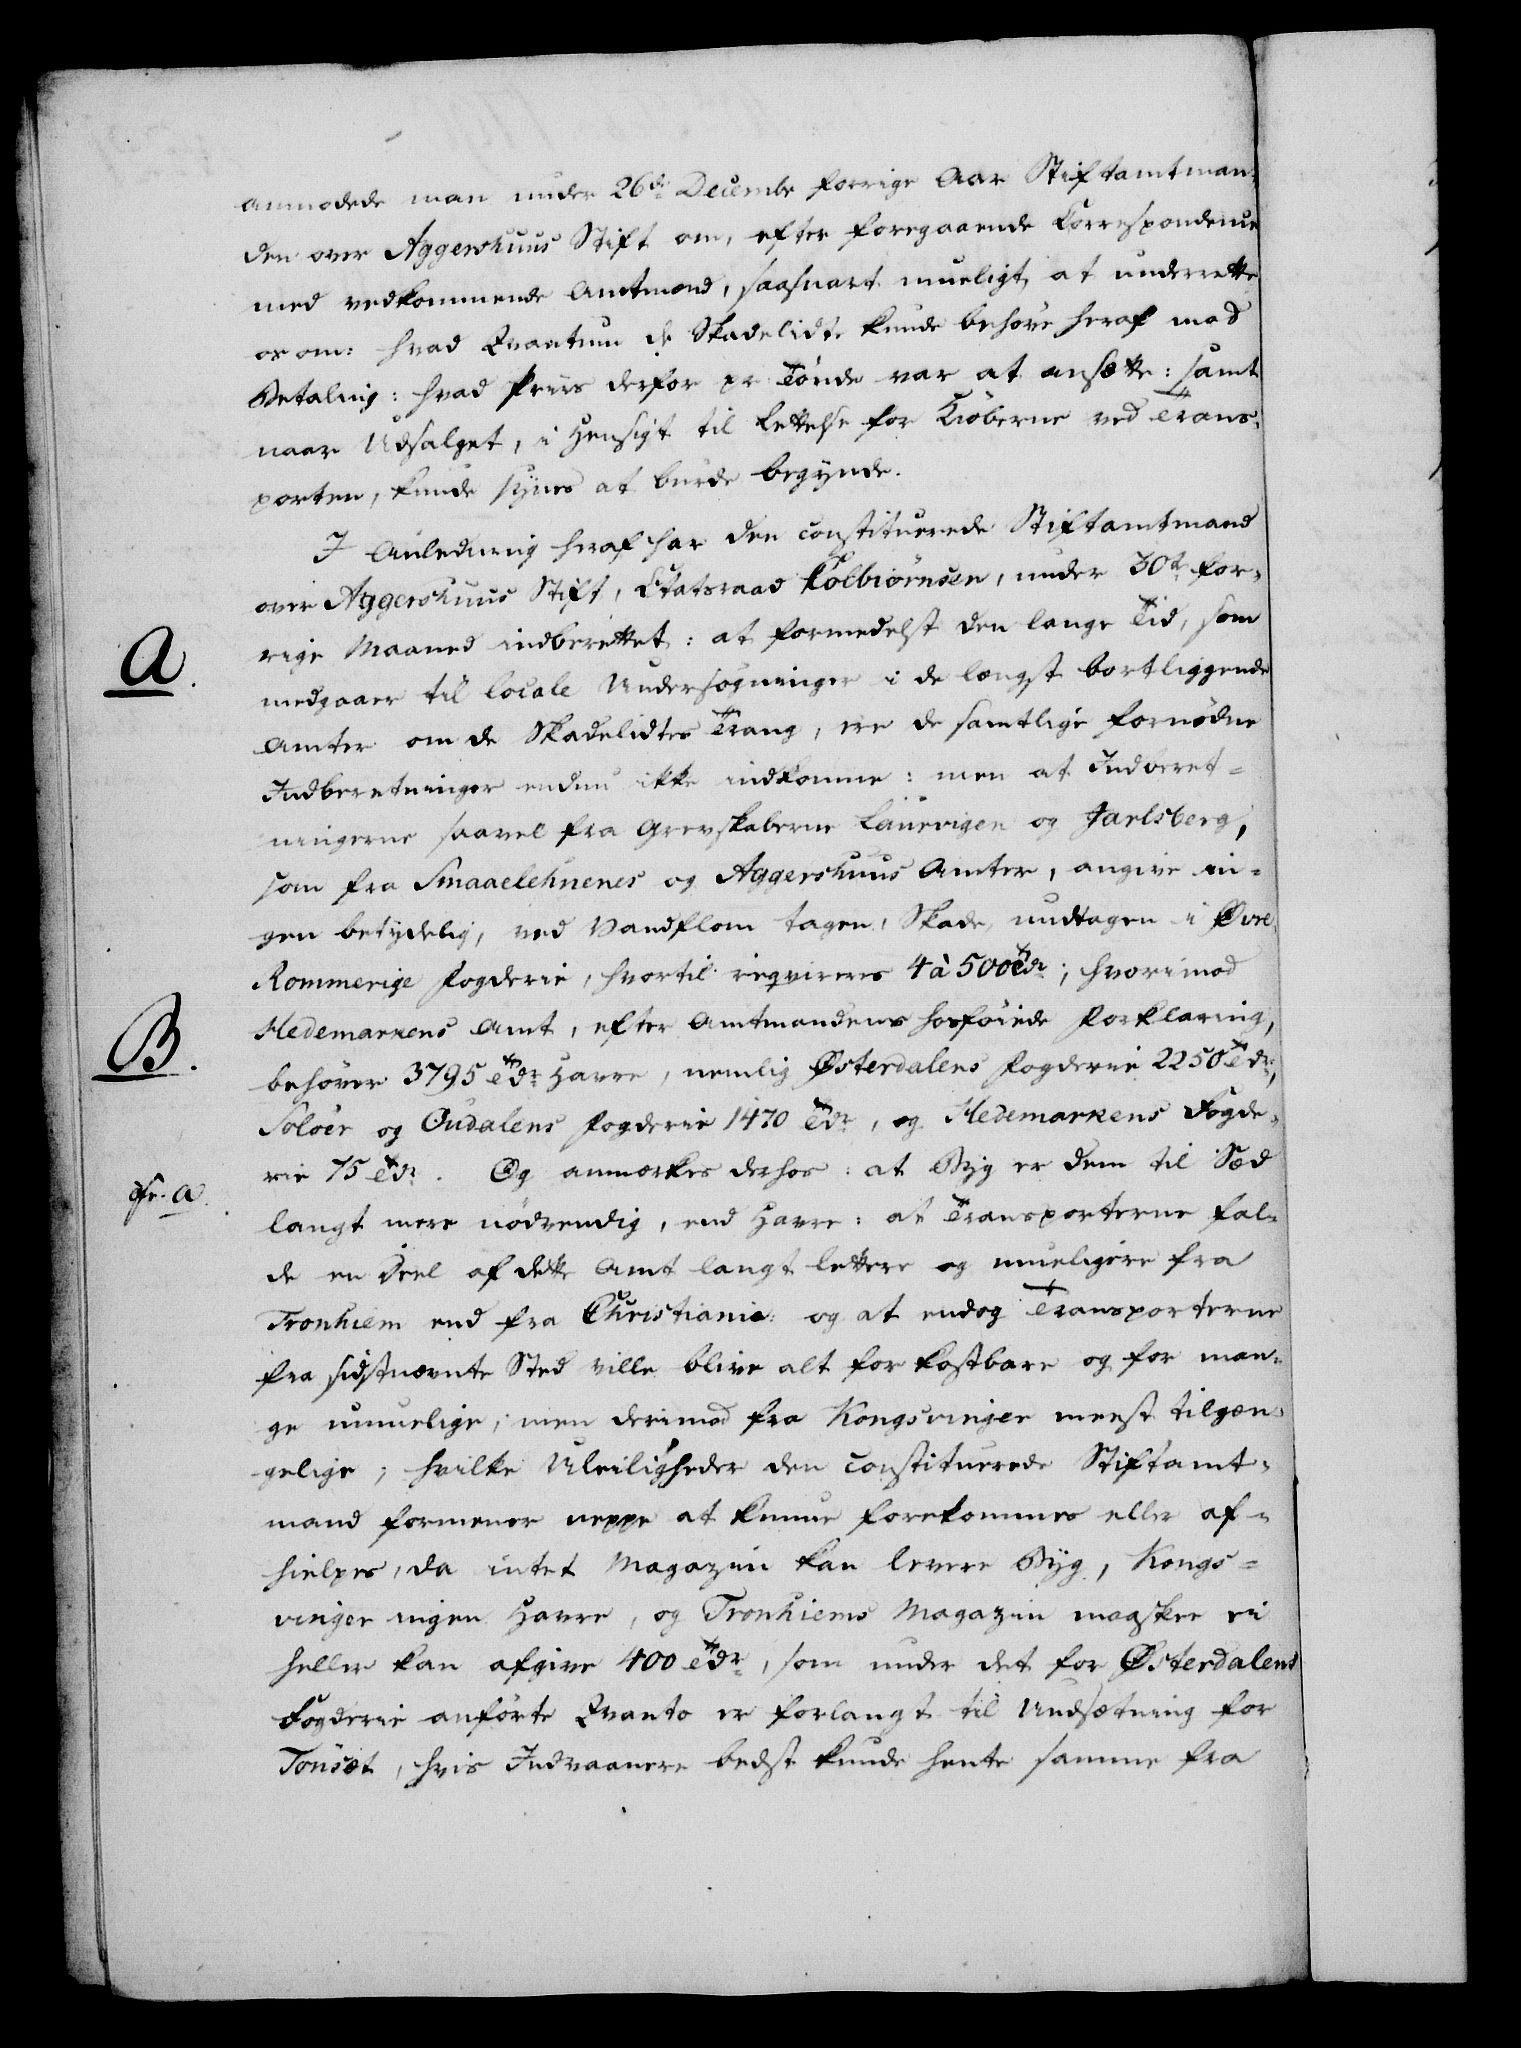 anmodede man under 26de Decembr forrige Aar Stiftamtman¬
den over Aggershuus Stift om, efter foregaaende Correspondence
med vedkommende Amtmænd, saasnart mueligt at underrette
os om: hvad Qvantum de Skadelidte kunde behöve heraf mod
Betaling: hvad Priis derfor pr Tönde var at ansætte: samt
naar Udsalget, i Hensigt til Lettelse for Kiöberne ved Trans¬
porten, kunde synes at burde begynde.
I Anledning heraf har den constituerede Stiftamtmand
over Aggershuus Stift, Etatsraad Kolbiörnsen, under 30te for¬
rige Maaned indberettet: at formedelst den lange Tid, som
A.
medgaaer til locale Undersögninger i de længst bortliggende
Amter om de Skadelidtes Trang, ere de samtlige fornödne
Indberetninger endnu ikke indkomne: men at Indberet¬
ningerne saavel fra Grevskaberne Laurvigen og Jarlsberg,
som fra Smaaelehnenes og Aggershuus Amter, angive in¬
gen betydelig, ved Vandflom tagen, Skade, undtagen i Øvre
Rommerige Fogderie, hvortil reqvireres 4 à 500 Tdr; hvorimod
Hedemarkens Amt, efter Amtmandens hosföiede Forklaring,
B.
behöver 3795 Tdr Havre, nemlig Østerdalens Fogderie 2250 Tdr,
Solöer og Oudalens Fogderie 1470 Tdr, og Hedemarkens Fogde¬
rie 75 Tdr. Og anmærkes derhos: at Byg er dem til Sæd
cfr. a.
langt mere nödvendig, end Havre: at Transporterne fal¬
de en Deel af dette Amt langt lettere og mueligere fra
Tronhiem end fra Christiania: og at endog Transporterne
fra sidstnævnte Sted ville blive alt for kostbare og for man¬
ge umuelige; men derimod fra Kongsvinger meest tilgæn¬
gelige; hvilke Uleiligheder den constituerede Stiftamt¬
mand formener neppe at kunne forekommes eller af¬
hielpes, da intet Magazin kan levere Byg, Kongs¬
vinger ingen Havre, og Tronhiems Magazin maaskee ei
heller kan afgive 400 Tdr, som under det for Østerdalens
Fogderie anförte Qvanto er forlangt til Undsætning for
Tönset, hvis Indvaanere bedst kunde hente samme fra